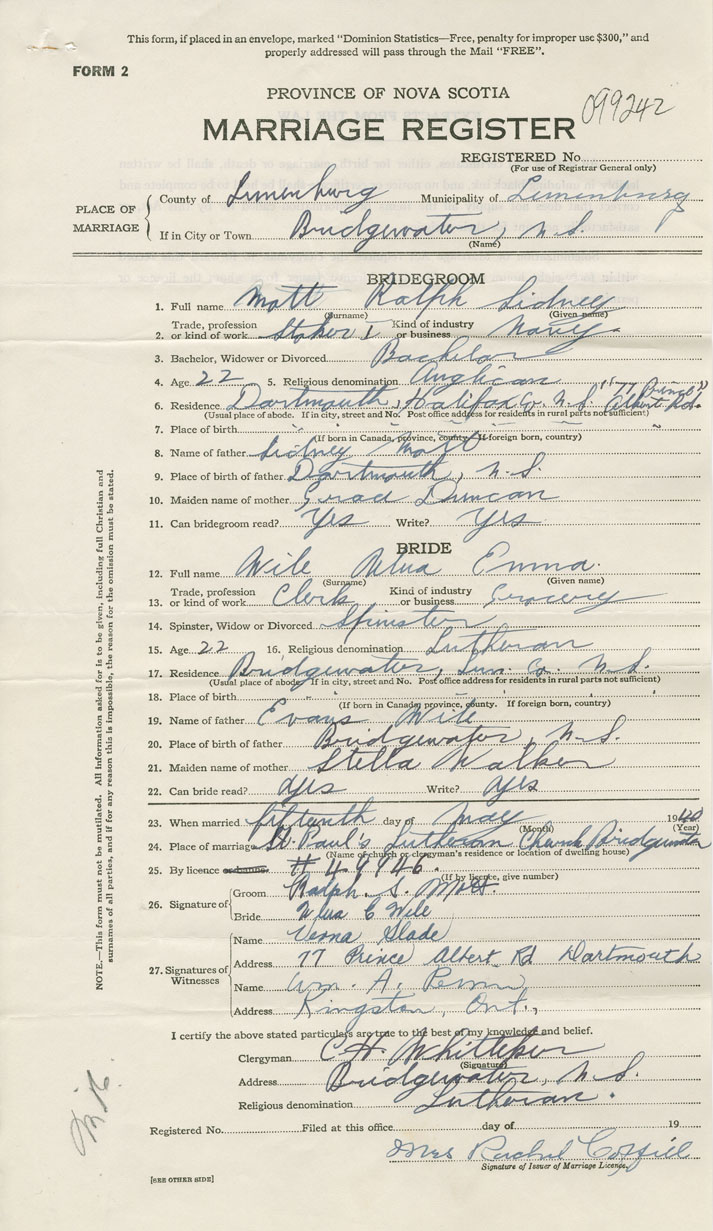 This form, if placed in an envelope, marked "Dominion Statistics—Free, penalty for improper use $300," and
properly addressed will pass through the Mail "FREE".
FORM 2
PROVINCE OF NOVA SCOTIA
099242
MARRIAGE REGISTER
REGISTERED No.
(For use of Registrar General only)
PLACE OF MARRIAGE
County of Lunenburg Municipality of Lunenburg
If in City or Town Bridgewater, N.S.
(Name)
BRIDEGROOM
1. Full name Mott Ralph Sidney
(Surname) (Given name)
2. Trade, profession or kind of work Stoker 1 Kind of industry or business Navy
3. Bachelor, Widower or Divorced Bachelor
4. Age 22 5. Religious denomination Anglican
6. Residence Dartmouth, Halifax Co. N.S. "77 Prince Albert Rd."
(Usual place of abode. If in city, street and No. Post office address for residents in rural parts not sufficient)
7. Place of birth " " "
(If born in Canada, province, county. If foreign born, country)
8. Name of father Sidney Mott
9. Place of birth of father Dartmouth, N.S.
10. Maiden name of mother Duncan
11. Can bridegroom read? Yes Write? Yes
BRIDE
12. Full name Wile Emma
(Surname) (Given name)
13. Trade, profession or kind of work Clerk Kind of industry or business Grocery
14. Spinster, Widow or Divorced Spinster
15. Age 22 16. Religious denomination Lutheran
17. Residence Bridgewater, Lun. Co. N.S.
(Usual place of abode. If in city, street and No. Post office address for residents in rural parts not sufficient)
18. Place of birth " " " "
(If born in Canada, province, county. If foreign born, country)
19. Name of father Evans Wile
20. Place of birth of father Bridgewater, N.S.
21. Maiden name of mother Stella Walker
22. Can bride read? Yes Write? Yes
23. When married fifteenth day of May 1940
(Month) (Year)
24. Place of marriage St. Paul's Lutheran Church Bridgewater
(Name of church or clergyman's residence or location of dwelling house)
25. By licence # 49946.
(If by licence, give number)
26. Signature of
Groom Ralph. S. Mott.
Bride E Wile
27. Signatures of Witnesses
Name Verna Slade
Address 77 Prince Albert Rd Dartmouth
Name Wm. A.
Address Kingston, Ont.,
I certify the above stated particulars are true to the best of my knowledge and belief.
Clergyman C H. Whitteker
(Signature)
Address Bridgewater, N.S.
Religious denomination Lutheran.
Registered No. Filed at this office day of 19
Mrs Rachel
Signature of Issuer of Marriage Licence.
[SEE OTHER SIDE]
NOTE.—This form must not be mutilated. All information asked for is to be given, including full Christian and
surnames of all parties, and if for any reason this is impossible, the reason for the omission must be stated.